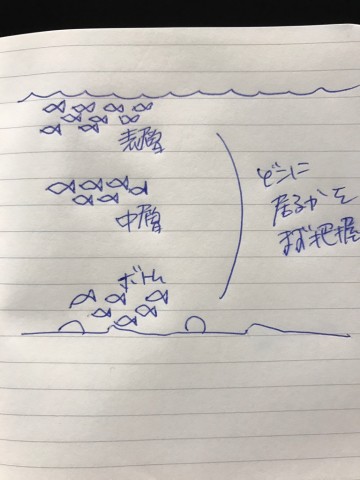 表層
中層
ボトム
どこに
居るかを
まず把握